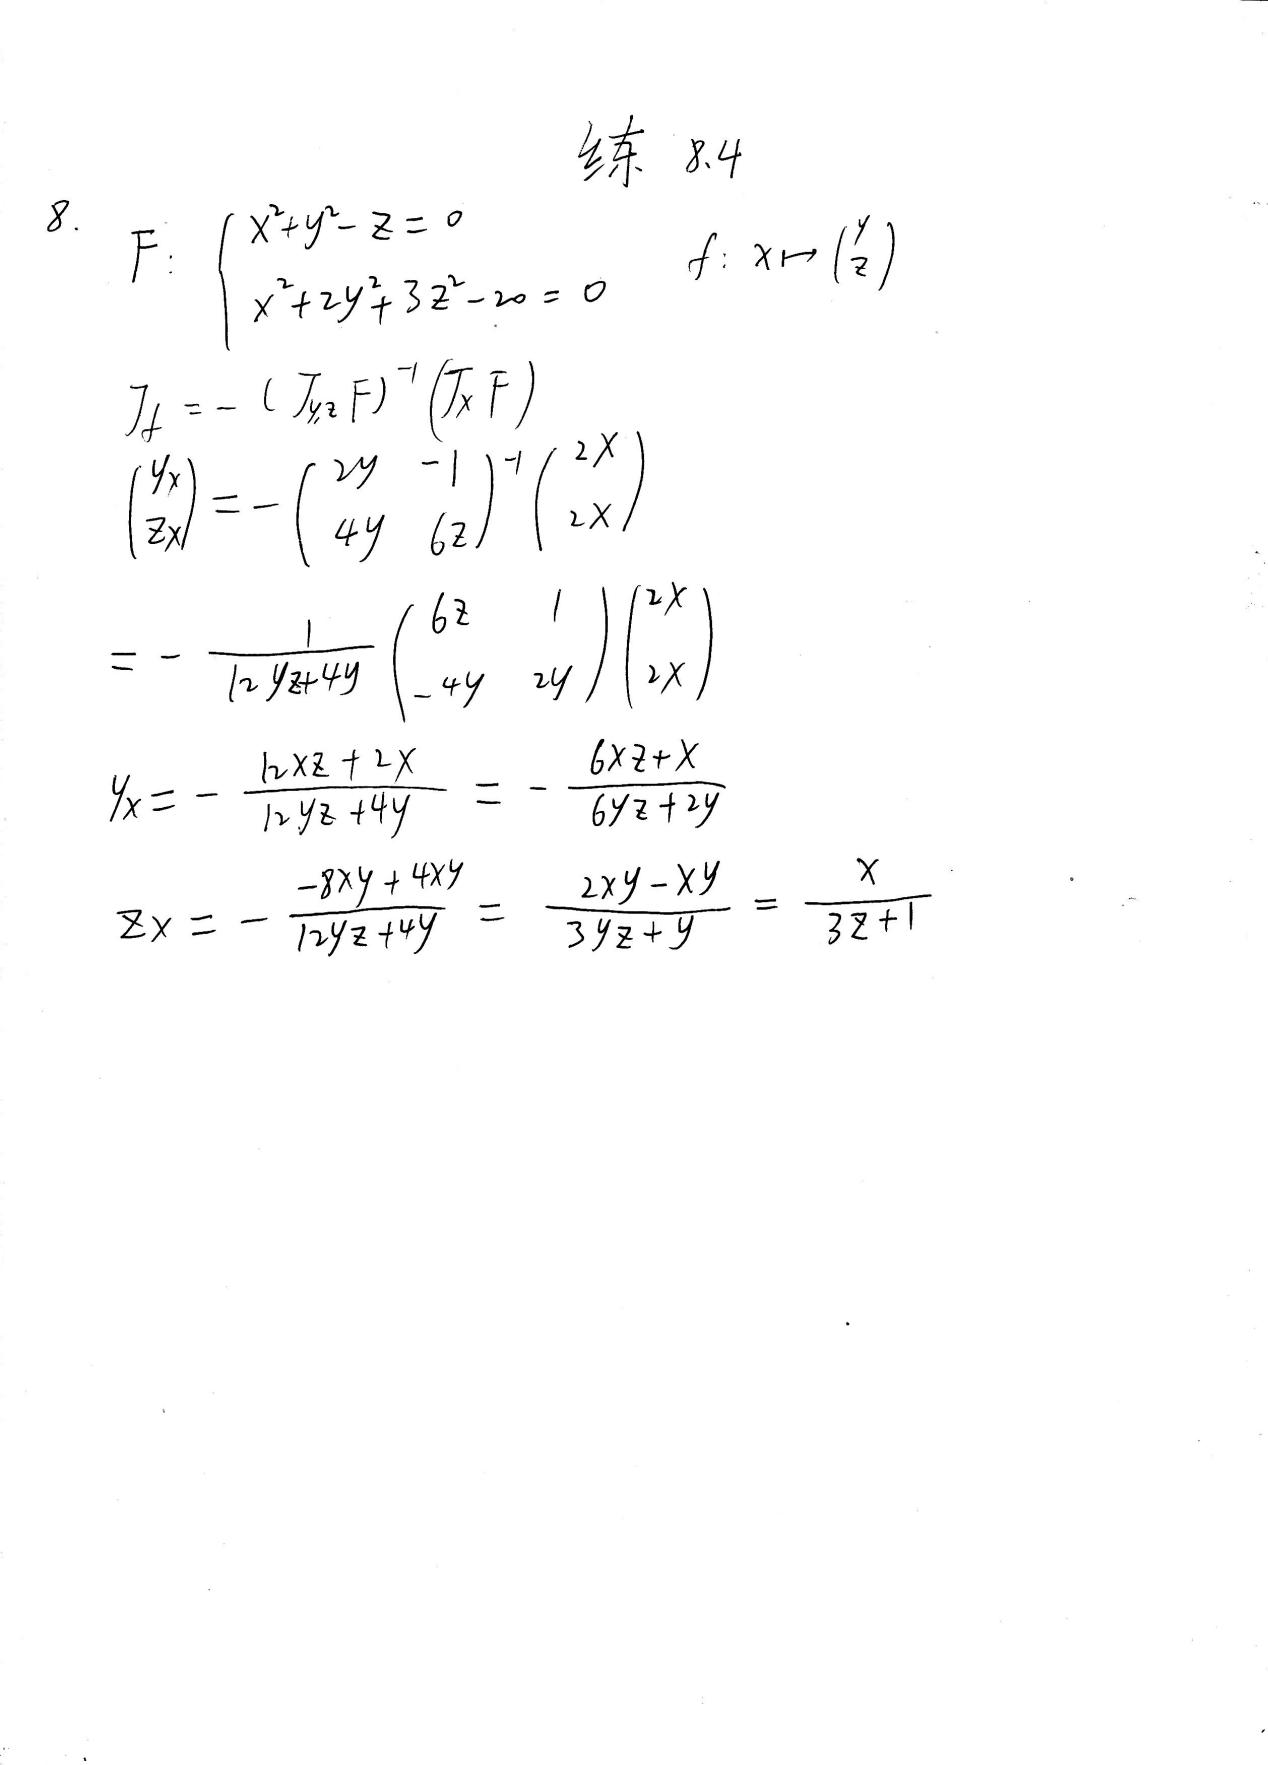 练 8.4
8. F: { x²+y²-z=0
x²+2y²+3z²-20=0 f: x↦(y z)
J_f = -(J_{y,z}F)⁻¹(J_xF)
(y_x z_x) = -(2y -1 4y 6z)⁻¹(2x 2x)
= - 1/(12yz+4y) (6z 1 -4y 2y)(2x 2x)
y_x = - (12xz+2x)/(12yz+4y) = - (6xz+x)/(6yz+2y)
z_x = - (-8xy+4xy)/(12yz+4y) = (2xy-xy)/(3yz+y) = x/(3z+1)